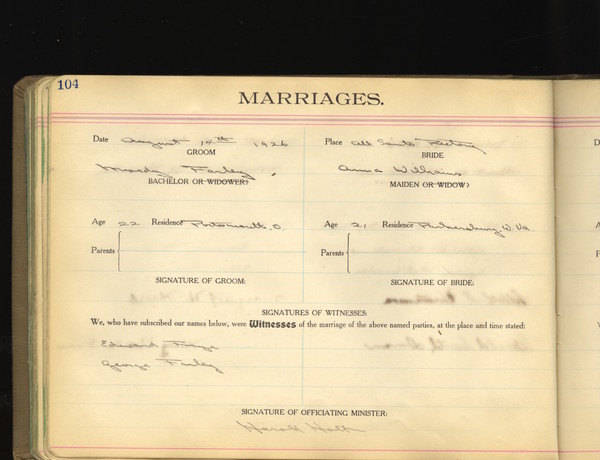 104
MARRIAGES.
Date August 14th 1926 Place All Saints Rectory
GROOM BRIDE
Moody Farley Anna Williams
BACHELOR OR WIDOWER? MAIDEN OR WIDOW?
Age 22 Residence Portsmouth, O. Age 21 Residence Parkersburg W. Va.
Parents Parents
SIGNATURE OF GROOM: SIGNATURE OF BRIDE:
SIGNATURES OF WITNESSES:
We, who have subscribed our names below, were Witnesses of the marriage of the above named parties, at the place and time stated:
Edward
George Farley
SIGNATURE OF OFFICIATING MINISTER:
Harold Holt